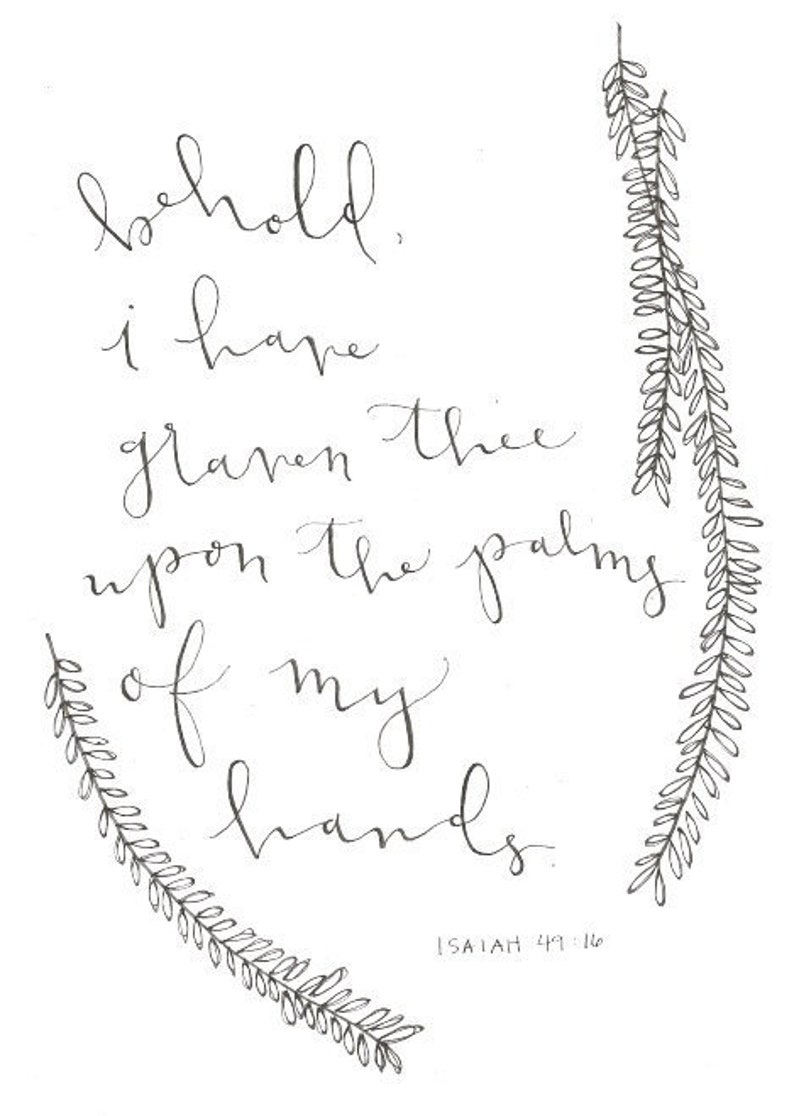 behold,
i have
graven thee
upon the palms
of my
hands.
ISAIAH 49:16